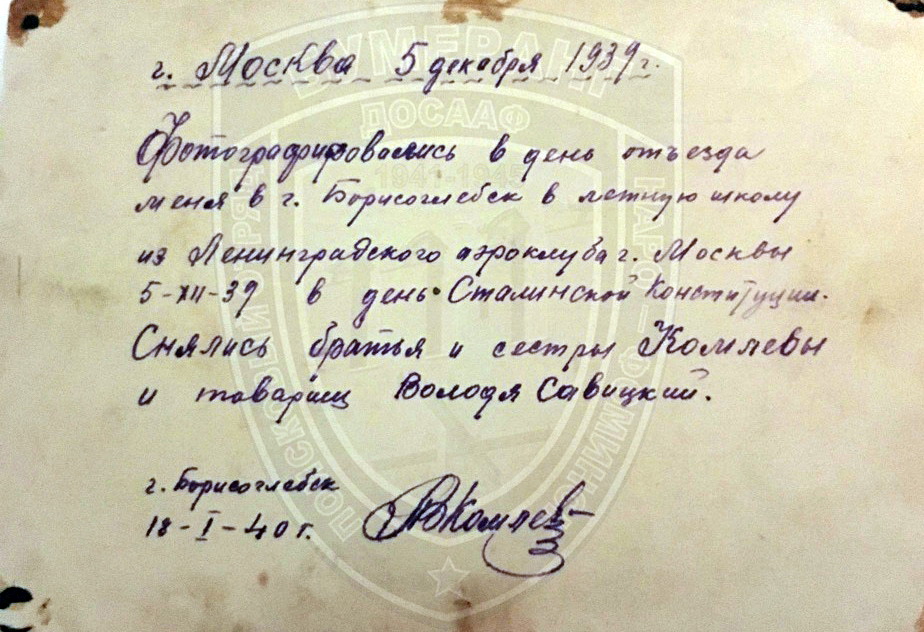 г. Москва 5 декабря 1939 г.
Фотографировались в день отъезда
меня в г. Борисоглебск в летную школу
из Ленинградского аэроклуба г. Москвы
5-XII-39 в день Сталинской Конституции.
Снялись братья и сестры Комлевы
и товарищ Володя Савицкий.
г. Борисоглебск
18-I-40 г.
АВКомлев
БУМЕРАНГ
ДОСААФ
1941-1945
ПОИСКОВЫЙ ОТРЯД
НАРО-ФОМИНСК